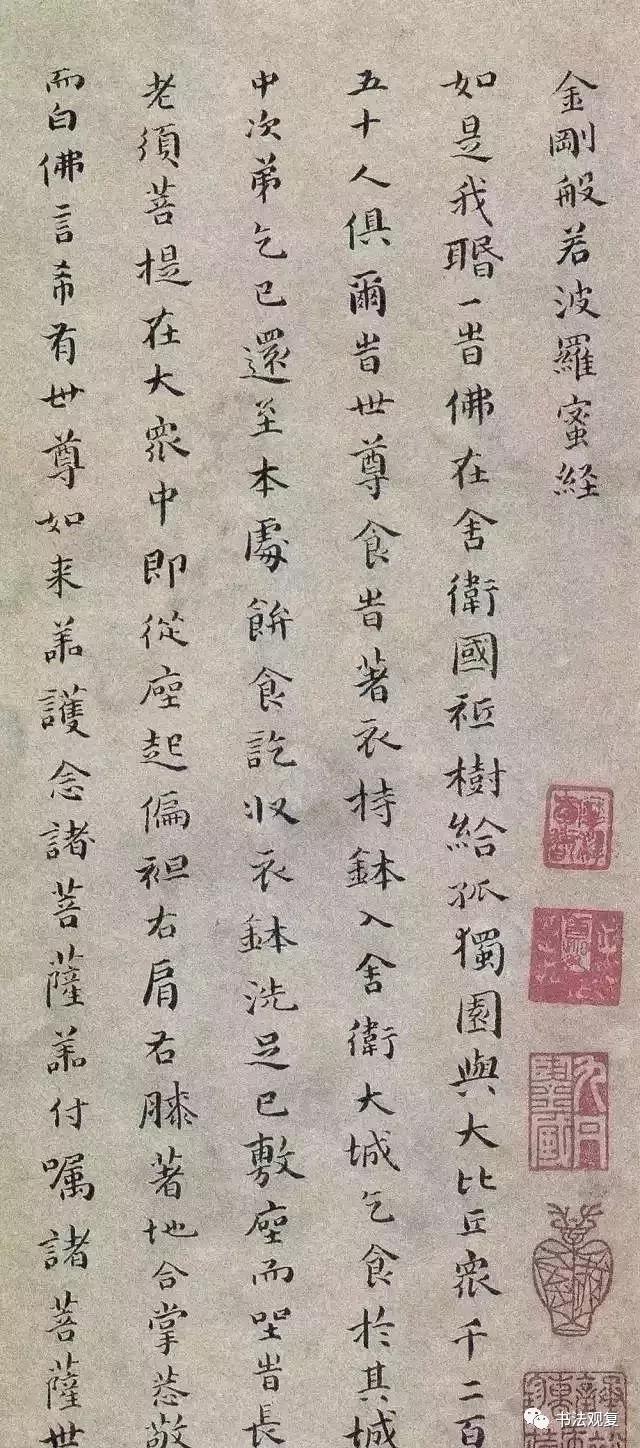 金剛般若波羅蜜経
如是我聞一旹佛在舍衛國祇樹給孤獨園與大比丘衆千二百
五十人俱爾旹世尊食旹著衣持鉢入舍衛大城乞食於其城
中次苐乞已還至本處飰食訖収衣鉢洗足已敷座而坐旹長
老須菩提在大衆中即從座起偏袒右肩右膝著地合掌恭敬
而白佛言希有世尊如来善護念諸菩薩善付嘱諸菩薩世
书法观复